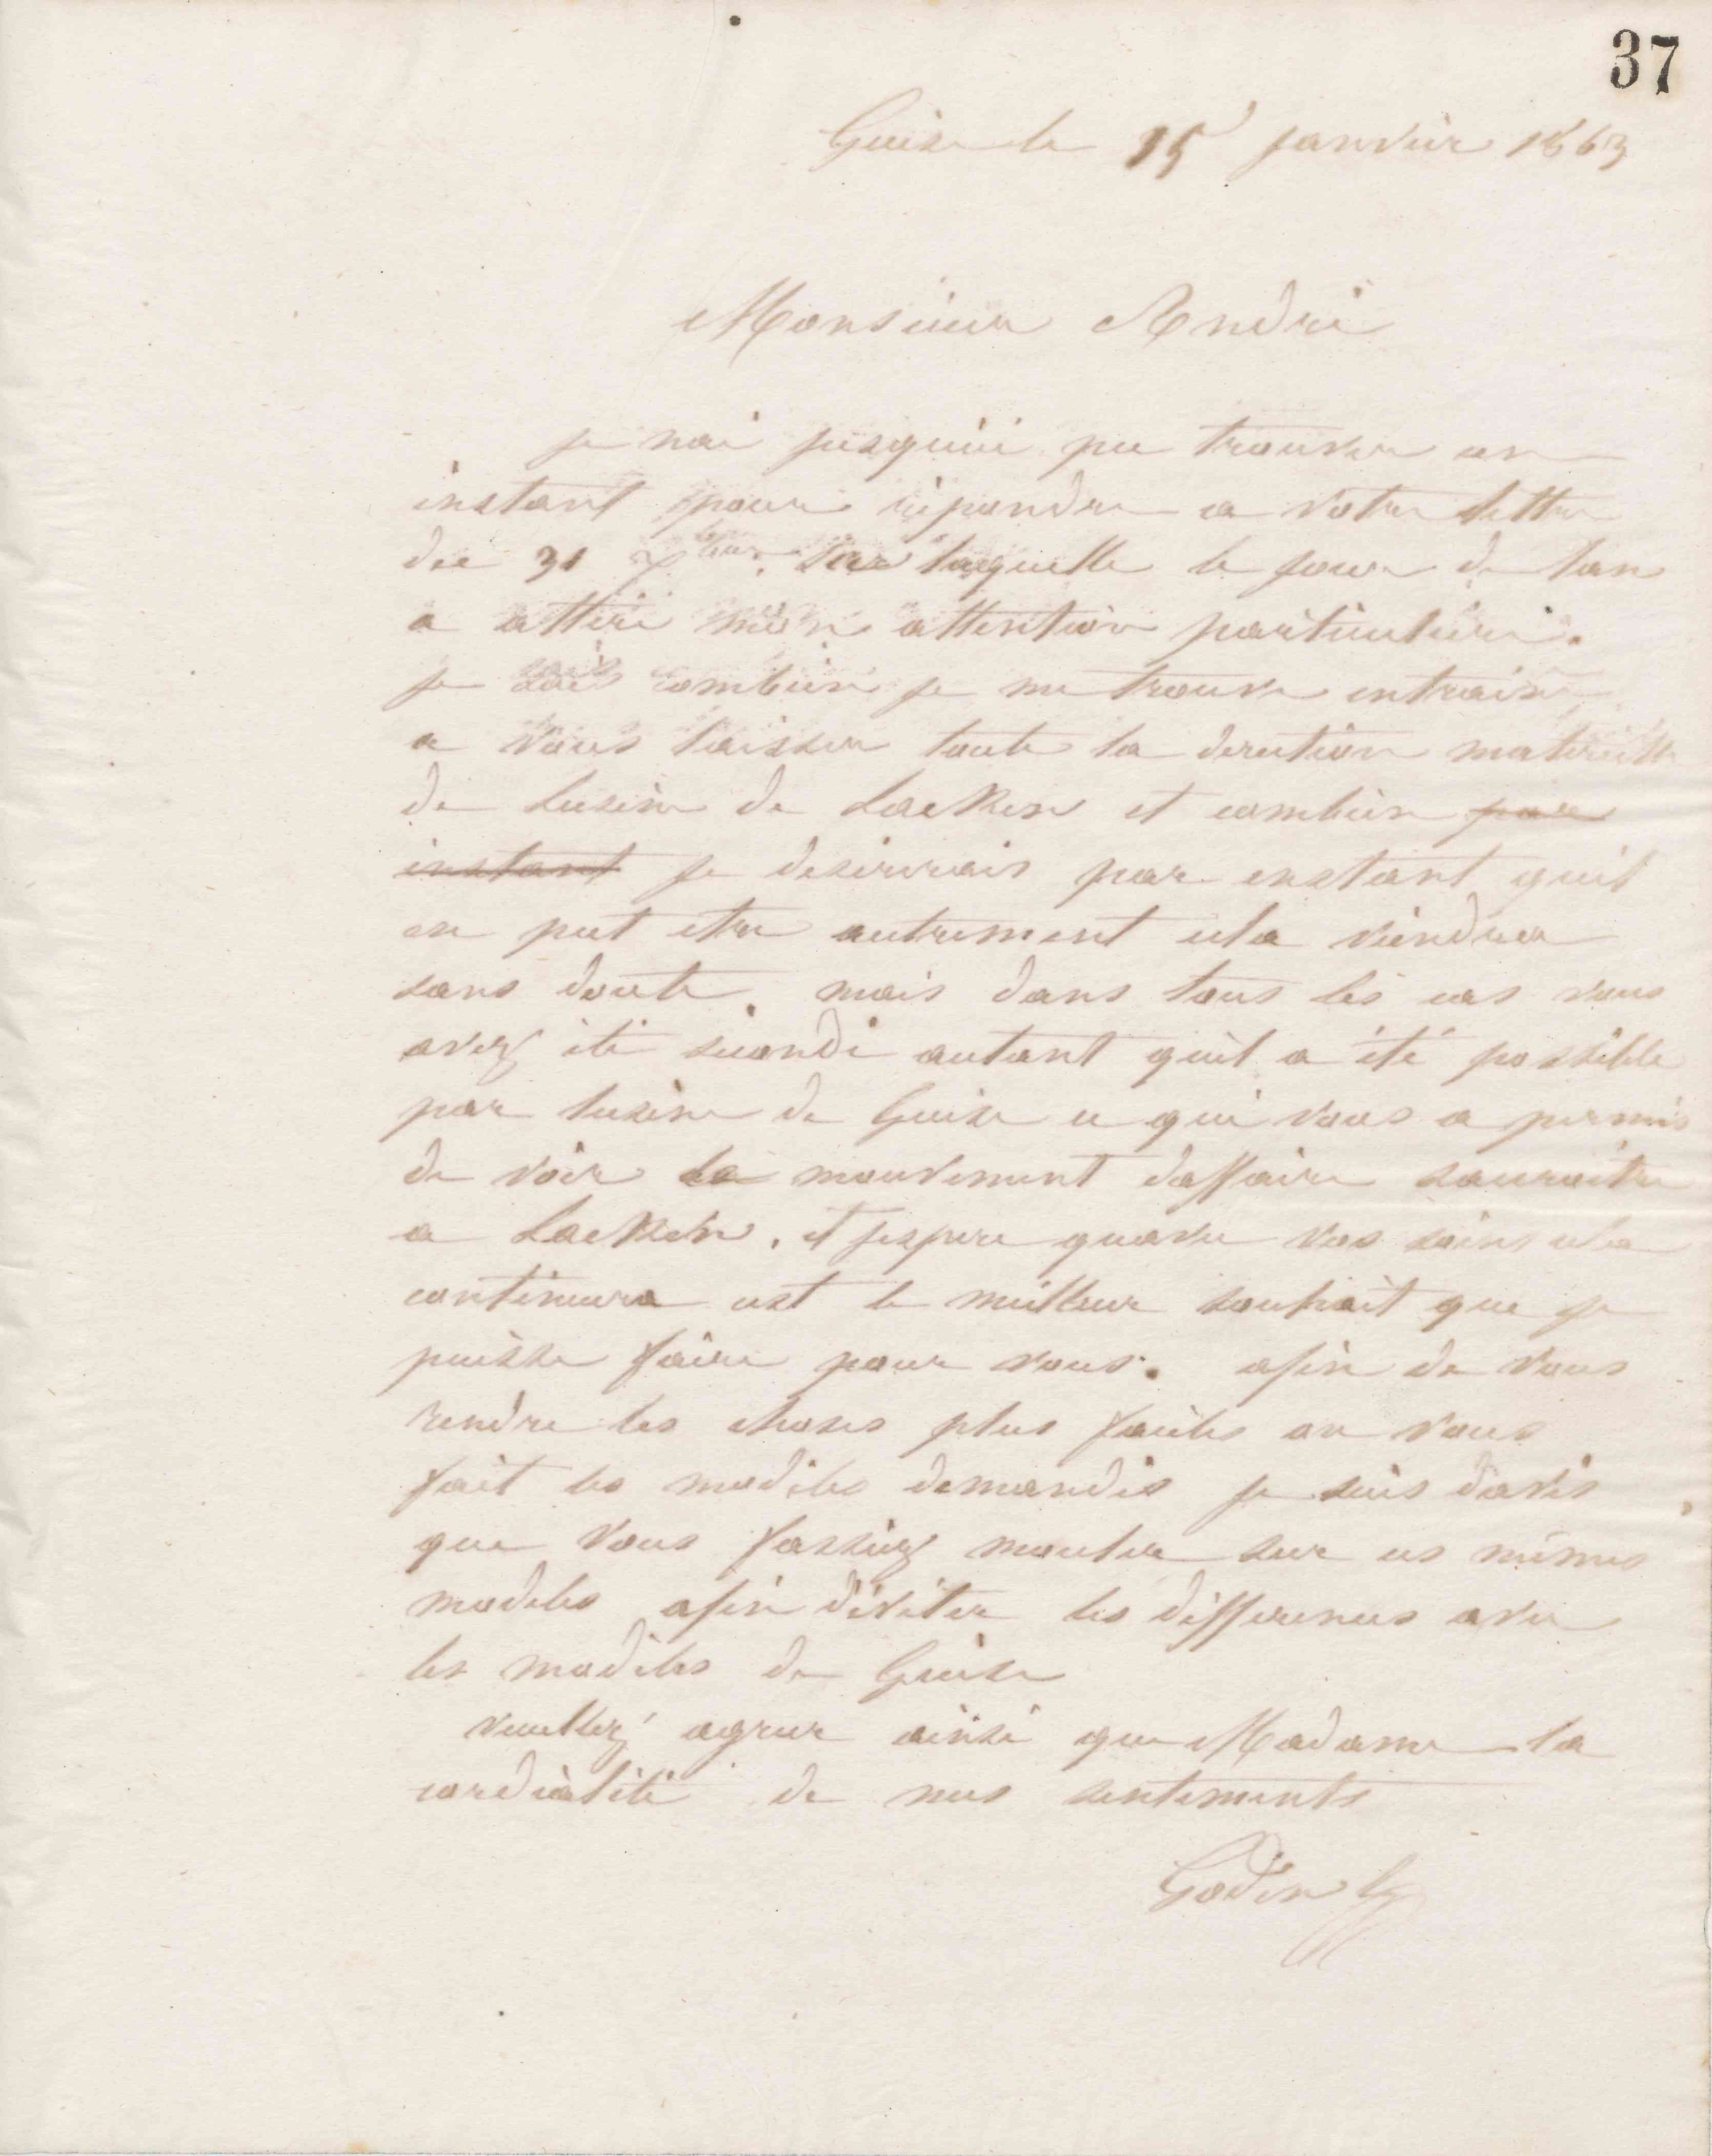 37
Guise le 15 janvier 1863
Monsieur André
je nai jusquici pu trouver un
instant pour répondre a votre lettre
du 31 Xbre. sur laquelle le jour de lan
a attiré mon attention particulière.
je sais combien je me trouve entrainé
a vous laisser toute la direction materielle
de lusine de Laeken et combien par
instant je desirerais par instant quil
en put etre autrement cela viendra
sans doute. mais dans tous les cas vous
avez été sécondé autant quil a été possible
par lusine de Guise ce qui vous a permis
de voir le mouvement daffaire saccroitre
a Laeken. et jespere quavec vos soins cela
continuera cest le meilleur souhait que je
puisse faire pour vous. afin de vous
rendre les choses plus faciles on vous
fait les modèles demandés je suis davis
que vous fassiez mouler sur ces mêmes
modeles afin déviter les differences avec
les modèles de Guise
veuillez agreer ainsi que Madame la
cordialité de mes sentiments
Godin